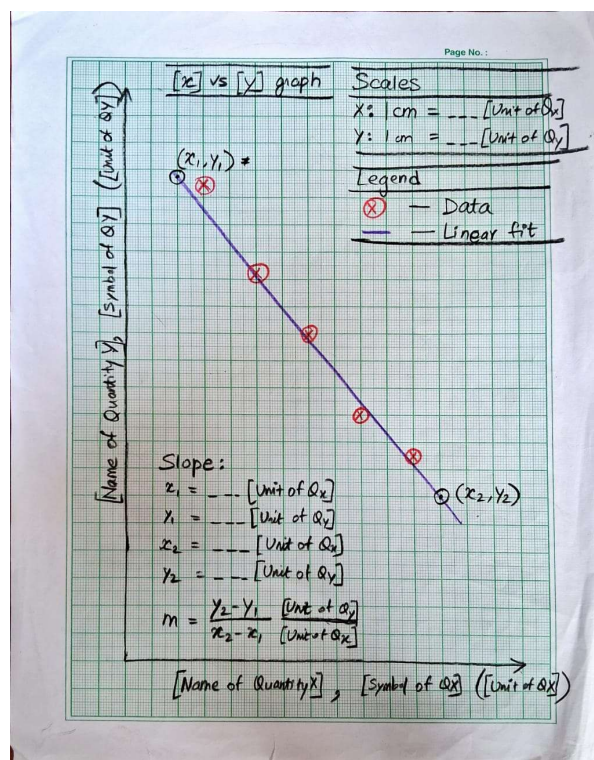 Page No. :
[x] vs [y] graph
Scales
X: 1 cm = ___ [Unit of Qx]
Y: 1 cm = ___ [Unit of Qy]
Legend
⊗ — Data
— Linear fit
(x₁, y₁) *
[Name of Quantity Y], [Symbol of QY] ([Unit of QY])
Slope:
x₁ = ___ [Unit of Qx]
y₁ = ___ [Unit of Qy]
x₂ = ___ [Unit of Qx]
y₂ = ___ [Unit of Qy]
m = y₂-y₁ / x₂-x₁ [Unit of Qy] / [Unit of Qx]
(x₂, y₂)
[Name of Quantity X], [Symbol of QX] ([Unit of QX])